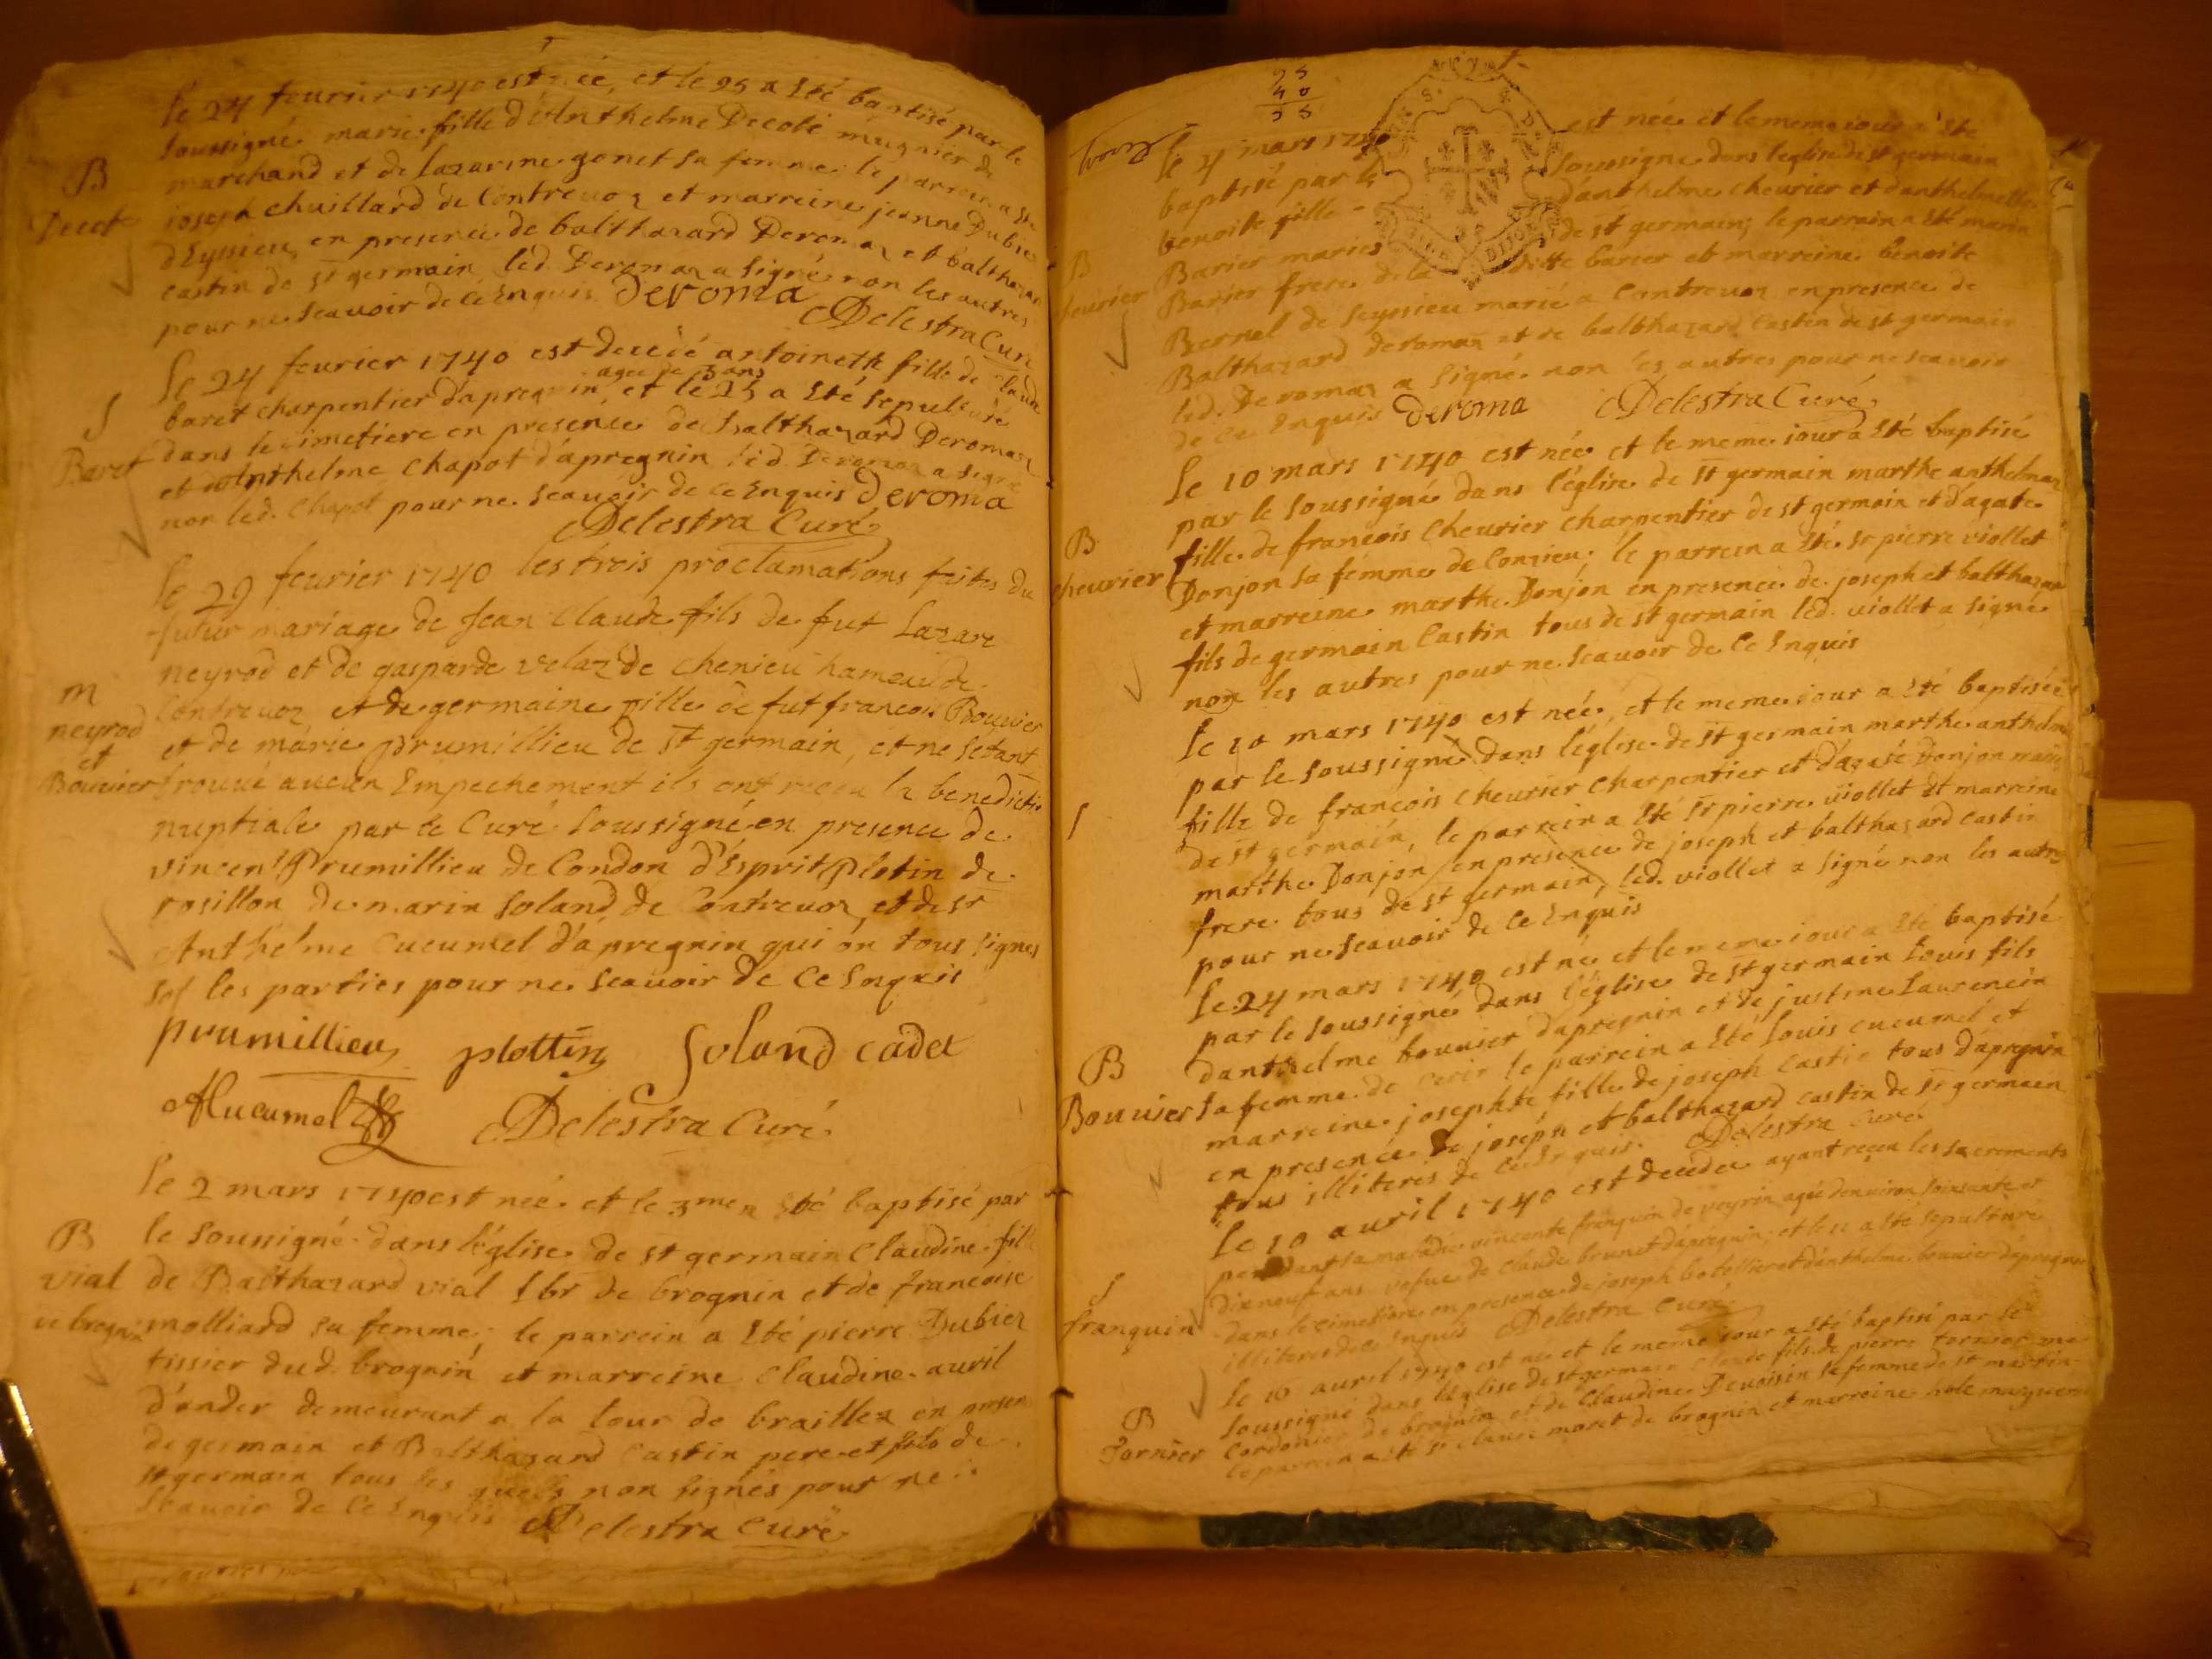 le 24 feurier 1740 est née, et le 25 a été baptisé par le
soussigné marie fille d'Anthelme Decoti mugnier de
marchand et de lazarine gonet sa femme le parrein a été
B
joseph chuillard de Contreuoz et marreine jeanne Dubiez
Decot
d'Eyssieu, en presence de balthazard Deromaz et balthazar
castin de st germain led. Deromaz a signé non les autres
pour ne scauoir de ce Enquis Deroma
Delestra Curé
le 24 feurier 1740 est decedé antoineth fille de claude
agee de 3 ans
baret charpentier d'apregnin et le 25 a été sepulturé
S
dans le cimetiere en presence de Balthazard Deromaz
Baret
et d'Anthelme Chapot d'apregnin led. Deromaz a signé
non led. Chapot pour ne scauoir de ce Enquis Deroma
Delestra Curé
le 29 feurier 1740 les trois proclamations faites du
futur mariage de Jean Claude fils de fut Lazare
neyrod et de gasparde velaz de chenieu hameau de
m
Contreuoz et de germaine fille de fut francois Bouuier
neyrod
et de marie prumillieu de st germain, et ne setant
et
Bouuier
trouué aucun Empechement ils ont receu la benedictio
nuptiale par le Curé soussigné en presence de
vincent Prumillieu de Condon d'Esprit Plotin de
rosillon de marin soland de Contreuoz et de sr
Anthelme Cucumel d'apregnin qui on tous signes
sof les parties pour ne scauoir de ce Enquis
prumillieu plottin Soland cadet
ACucumel Delestra Curé
le 2 mars 1740 est née et le 3me a été baptisé par
B
le soussigné dans l'église de st germain Claudine fill
vial
de Balthazard vial lbr de brognin et de francoise
de brognin
molliard sa femme, le parrein a été pierre Dubiez
tissier dud. brognin et marreine Claudine auril
d'ander demeurant a la tour de braillez en presen
de germain et Balthazard Castin pere et fils de
st germain tous les quels non signés pour ne
scauoir de ce Enquis Delestra curé
25
40
35
le 4 mars 1740 est née et le meme iour a été
baptisé par le soussigné dans l'eglise de st germain
benoite fille d'anthelme cheurier et d'anthelmette
B
Barier mariés de st germain, le parrain a été marin
cheurier
Barier frere de la ditte barier et marreine benoite
Bernel de seyssieu marié a Contreuoz en presence de
Balthazard deromaz et de balthazard Castin de st germain
led. Deromaz a signé non les autres pour ne scauoir
de ce Enquis Deroma Delestra Curé
le 10 mars 1740 est née et le meme iour a été baptisé
par le soussigné dans l'église de st germain marthe anthelmaz
B
fille de francois Cheurier charpentier de st germain et d'agate
cheurier
Donjon sa femme de Conzieu, le parrein a été sr pierre viollet
et marreine marthe Donjon en presence de joseph et balthazar
fils de germain Castin tous de st germain led. viollet a signé
non les autres pour ne scauoir de ce Enquis
le 10 mars 1740 est née, et le meme iour a été baptisée
par le soussigné dans l'église de st germain marthe anthelm
fille de francois cheurier charpentier et d'agate Donjon
de st germain, le parrein a été sr pierre viollet et marreine
marthe Donjon en presence de joseph et balthazard castin
frere tous de st germain, led. viollet a signé non les autres
pour ne scauoir de ce Enquis
le 24 mars 1740 est né et le meme iour a été baptisé
par le soussigné dans l'église de st germain Louis fils
B
d'anthelme bouuier d'apregnin et de justine Laurencin
Bouuier
sa femme de le parrein a été Louis cucumel et
marreine josephte fille de joseph Castin tous d'apregnin
en presence de joseph et balthazard castin de st germain
tous illiterés de ce Enquis. Delestra Curé
le 10 auril 1740 est decedee ayant receu les sacrements
pendant sa maladie vincente franquin de veyrin agée d'enuiron soixante et
S
dixneuf ans vefue de Claude brunet d'apregnin, et le 11 a été sepulturé
franquin
dans le cimetiere en presence de joseph botollier et d'anthelme bouuier d'apregnin
illiteres de ce Enquis Delestra Curé
le 10 auril 1740 est né et le meme iour a été baptisé par le
soussigné dans l'église de st germain Claude fils de pierre tornier me
B
Cordonier de brognin et de Claudine Deuoisin sa femme de st martin
Tornier
le parrein a été sr claude moret de brognin et marreine